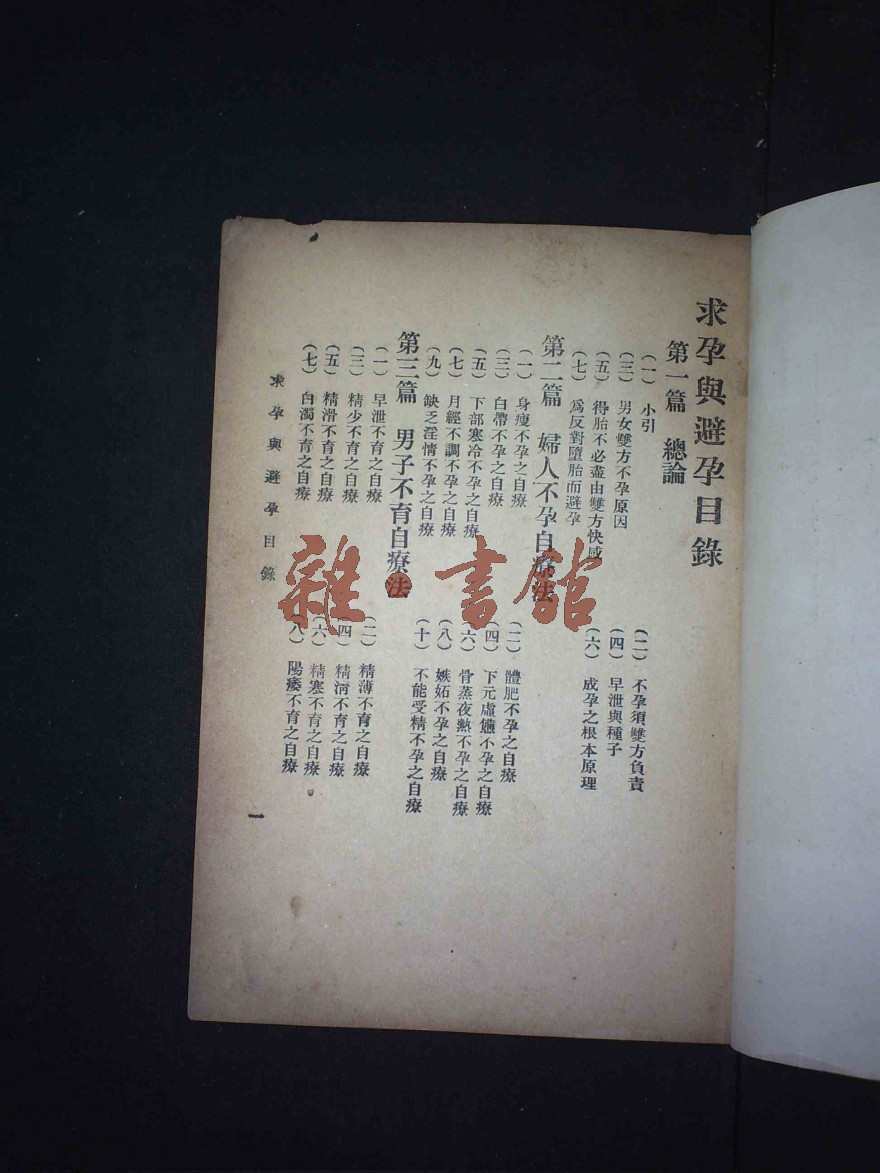 求孕與避孕目錄
第一篇 總論
(一) 小引
(二) 不孕須雙方負責
(三) 男女雙方不孕原因
(四) 早泄與種子
(五) 得胎不必盡由雙方快感
(六) 成孕之根本原理
(七) 爲反對墮胎而避孕
第二篇 婦人不孕自療法
(一) 身瘦不孕之自療
(二) 體肥不孕之自療
(三) 白帶不孕之自療
(四) 下元虛憊不孕之自療
(五) 下部寒冷不孕之自療
(六) 骨蒸夜熱不孕之自療
(七) 月經不調不孕之自療
(八) 嫉妬不孕之自療
(九) 缺乏淫情不孕之自療
(十) 不能受精不孕之自療
第三篇 男子不育自療法
(一) 早泄不育之自療
(二) 精薄不育之自療
(三) 精少不育之自療
(四) 精 不育之自療
(五) 精滑不育之自療
(六) 精寒不育之自療
(七) 白濁不育之自療
(八) 陽痿不育之自療
求孕與避孕目錄
一
雜·書館